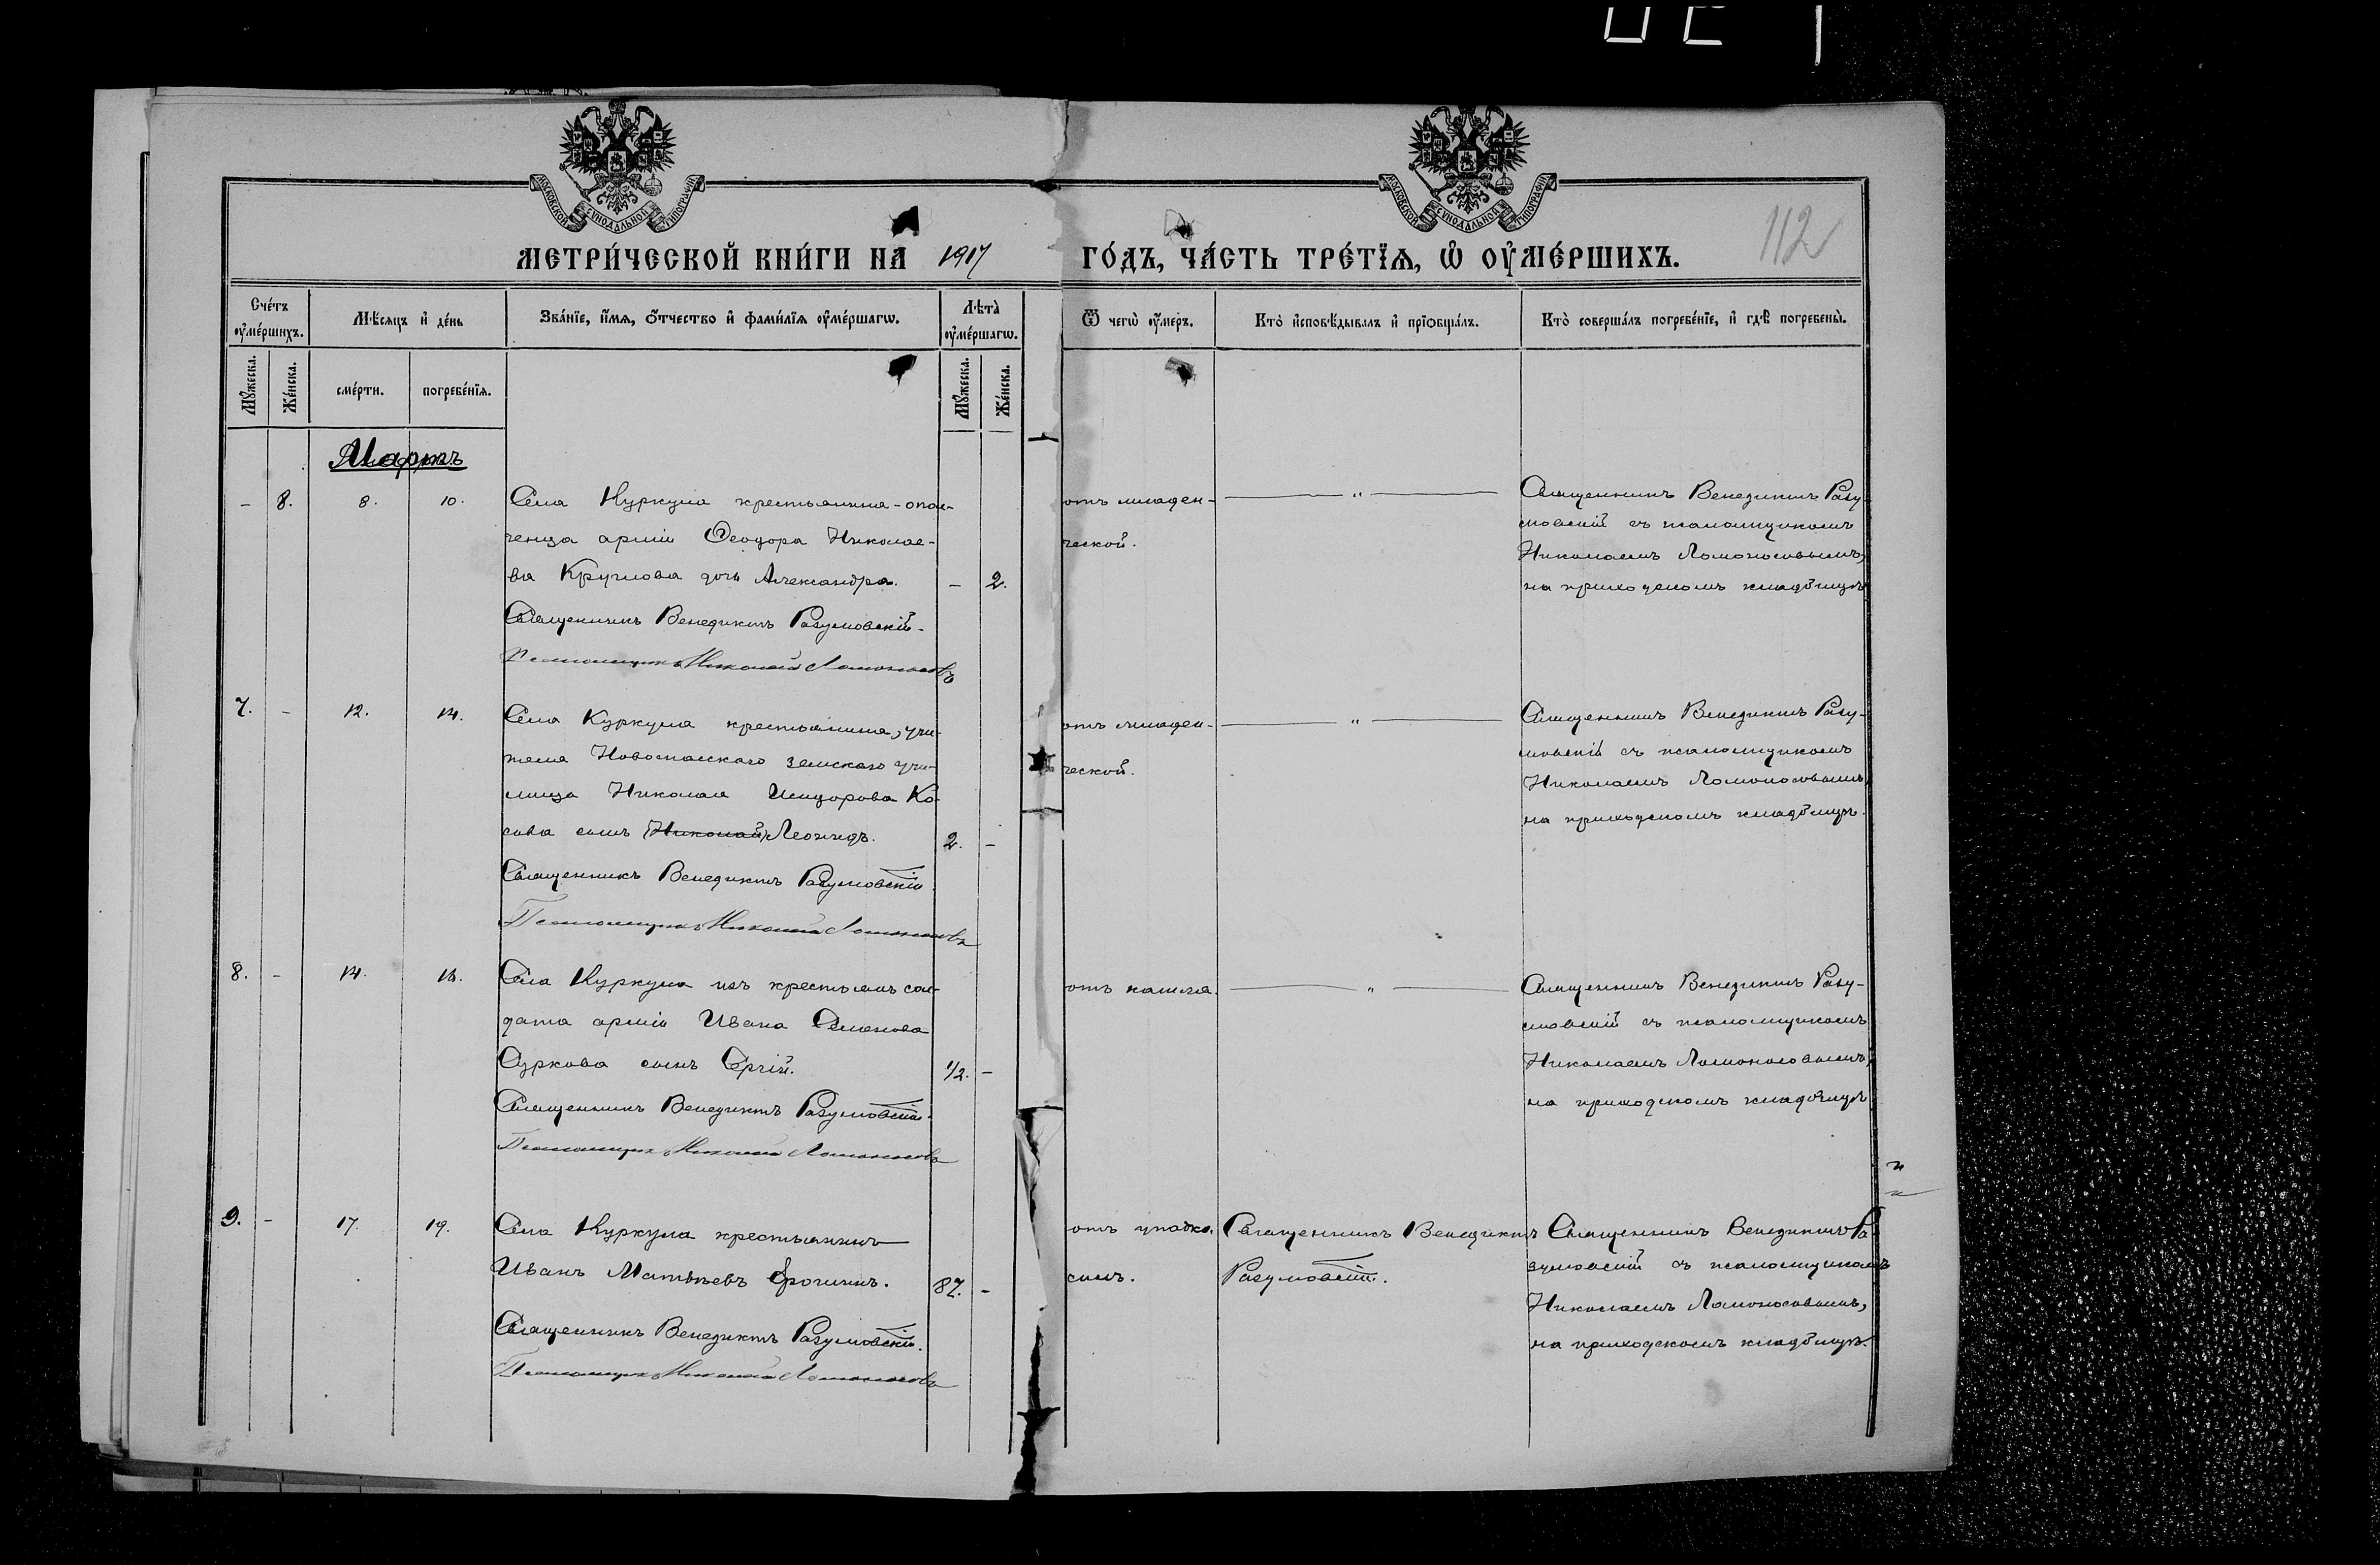 МОСКОВСКОЙ СУНОДАЛЬНОЙ ТИПОГРАФІИ
МОСКОВСКОЙ СУНОДАЛЬНОЙ ТИПОГРАФІИ
МЕТРИ́ЧЕСКОЙ КНИ́ГИ НА 1917
ГО́ДЪ, ЧА́СТЬ ТРЕ́ТЇѦ, Ѡ ОУМЕ́РШИХЪ.
112
Сче́тъ
оуме́ршихъ.
Мѣ́сѧцъ и де́нь
Зва́нїе, и́мѧ, ѻ́тчество и фами́лїѧ оуме́ршагѡ.
Лѣта̀
оуме́ршагѡ.
Ѿ чегѡ̀ оу́меръ.
Кто̀ исповѣ́дывалъ и прїѡбща́лъ.
Кто̀ соверша́лъ погребе́нїе, и гдѣ̀ погребены̀.
Мꙋ́жеска.
Же́нска.
сме́рти.
погребе́нїѧ.
Мꙋ́жеска.
Же́нска.
Мартъ
- 8. 8. 10.
Села Куркула крестьянина-опол-
ченца арміи Ѳеодора Николае-
ва Круглова дочь Александра. - 2.
Священникъ Венедиктъ Разумовскій.
Псаломщикъ Николай Ломоносовъ
отъ младен-
ческой.
"
Священникъ Венедиктъ Разу-
мовскій съ псаломщикомъ
Николаемъ Ломоносовымъ,
на приходскомъ кладбищѣ
7. - 12. 14.
Села Куркула крестьянина, учи-
теля Новоспасскаго земскаго учи-
лища Николая Исидорова Ко-
сова сынъ (Николай) Леонидъ. 2. -
Священникъ Венедиктъ Разумовскій
Псаломщикъ Николай Ломоносовъ
отъ младен-
ческой.
"
Священникъ Венедиктъ Разу-
мовскій съ псаломщикомъ
Николаемъ Ломоносовымъ,
на приходскомъ кладбищѣ.
8. - 14. 16.
Села Куркула изъ крестьянъ сол-
дата арміи Ивана Семенова
Суркова сынъ Сергій. 1/2. -
Священникъ Венедиктъ Разумовскій.
Псаломщикъ Николай Ломоносовъ
отъ кашля.
"
Священникъ Венедиктъ Разу-
мовскій съ псаломщикомъ
Николаемъ Ломоносовымъ,
на приходскомъ кладбищѣ
9. - 17. 19.
Села Куркула крестьянинъ
Иванъ Матѳѣевъ Ерочинъ. 87. -
Священникъ Венедиктъ Разумовскій.
Псаломщикъ Николай Ломоносовъ
отъ упадка
силъ.
Священникъ Венедиктъ
Разумовскій.
Священникъ Венедиктъ Ра-
зумовскій съ псаломщикомъ
Николаемъ Ломоносовымъ,
на приходскомъ кладбищѣ.